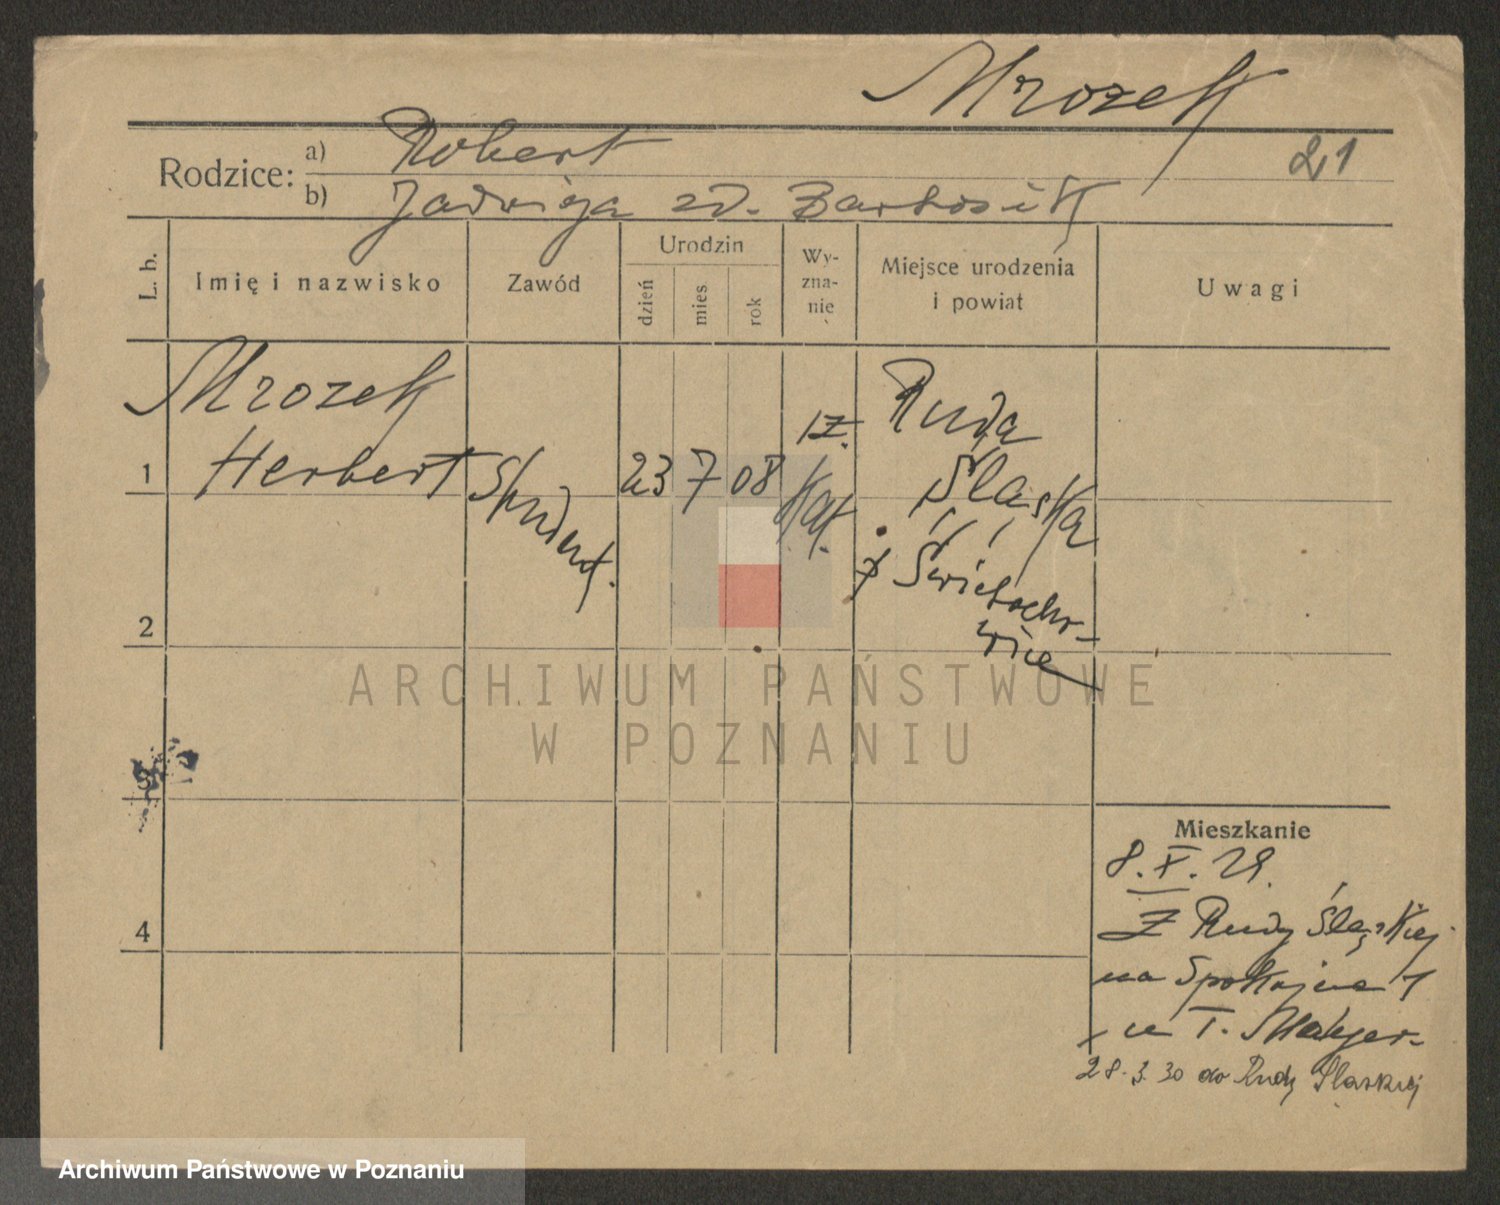 Mrozek
21
Rodzice: a) Robert
b) Jadwiga zd. Bartosik
L. b.
Imię i nazwisko
Zawód
Urodzin
dzień
mies
rok
Wy-
zna-
nie
Miejsce urodzenia
i powiat
Uwagi
Mrozek
1 Herbert
Student.
23 7 08
rz.
kat.
Ruda
Śląska
p Świętochło-
wice
2
ARCHIWUM PAŃSTWOWE
W POZNANIU
3
4
Mieszkanie
8.X.29.
z Rudy Śląskiej
na Spokojna 1
u T.
28.3.30 do Rudy Śląskiej
Archiwum Państwowe w Poznaniu